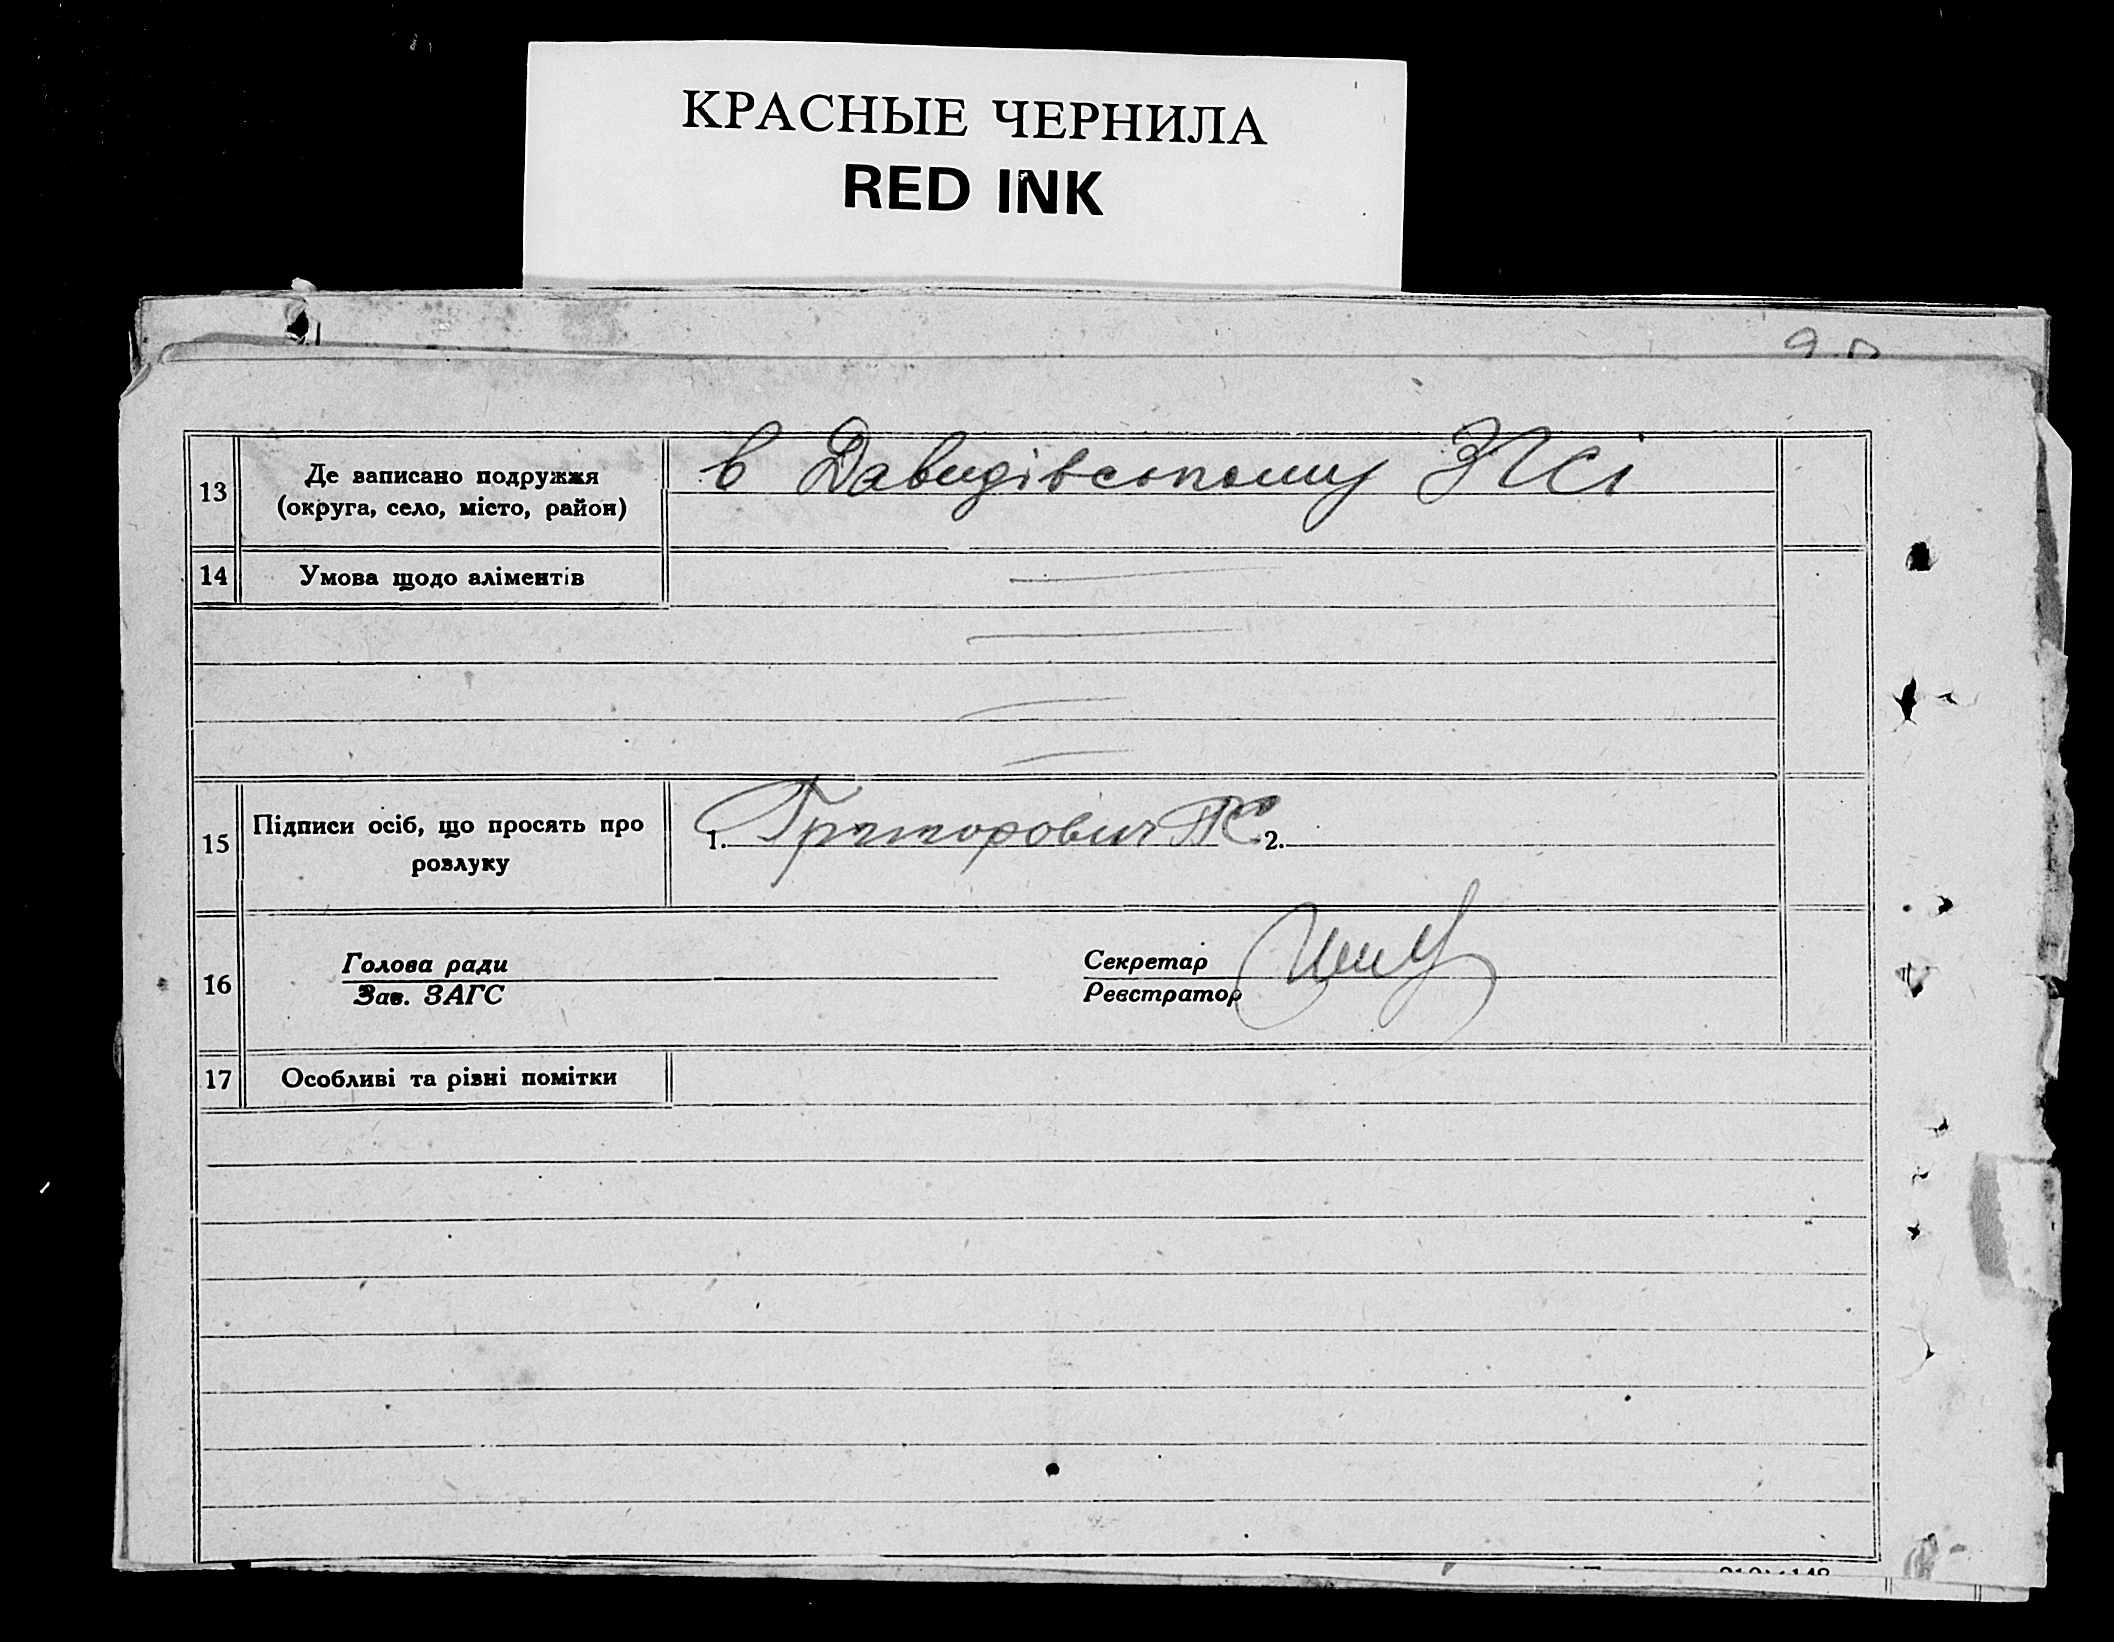 КРАСНЫЕ ЧЕРНИЛА
RED INK
13 Де записано подружжя
(округа, село, місто, район)
в Давидівському ЗПСі
14 Умова щодо аліментів
15 Підписи осіб, що просять про
розлуку
1. Григорович 2.
16 Голова ради
Зав. ЗАГС
Секретар
Реєстратор
17 Особливі та різні помітки